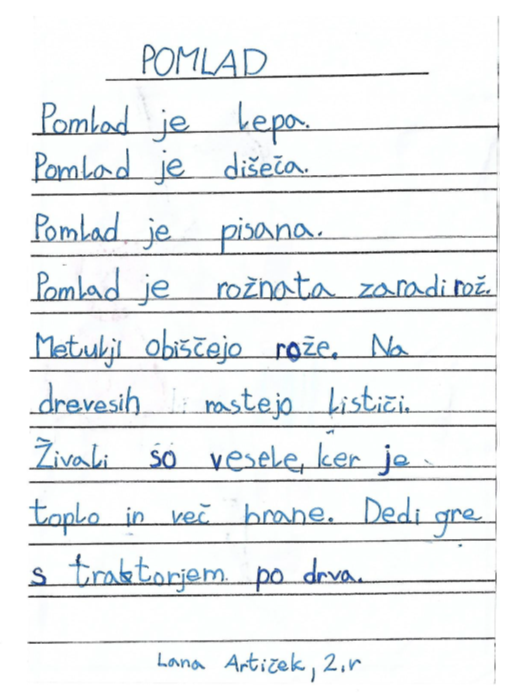 POMLAD
Pomlad je lepa.
Pomlad je dišeča.
Pomlad je pisana.
Pomlad je rožnata zaradi rož.
Metulji obiščejo rože. Na
drevesih rastejo lističi.
Živali so vesele, ker je
toplo in več hrane. Dedi gre
s traktorjem po drva.
Lana Artiček, 2.r